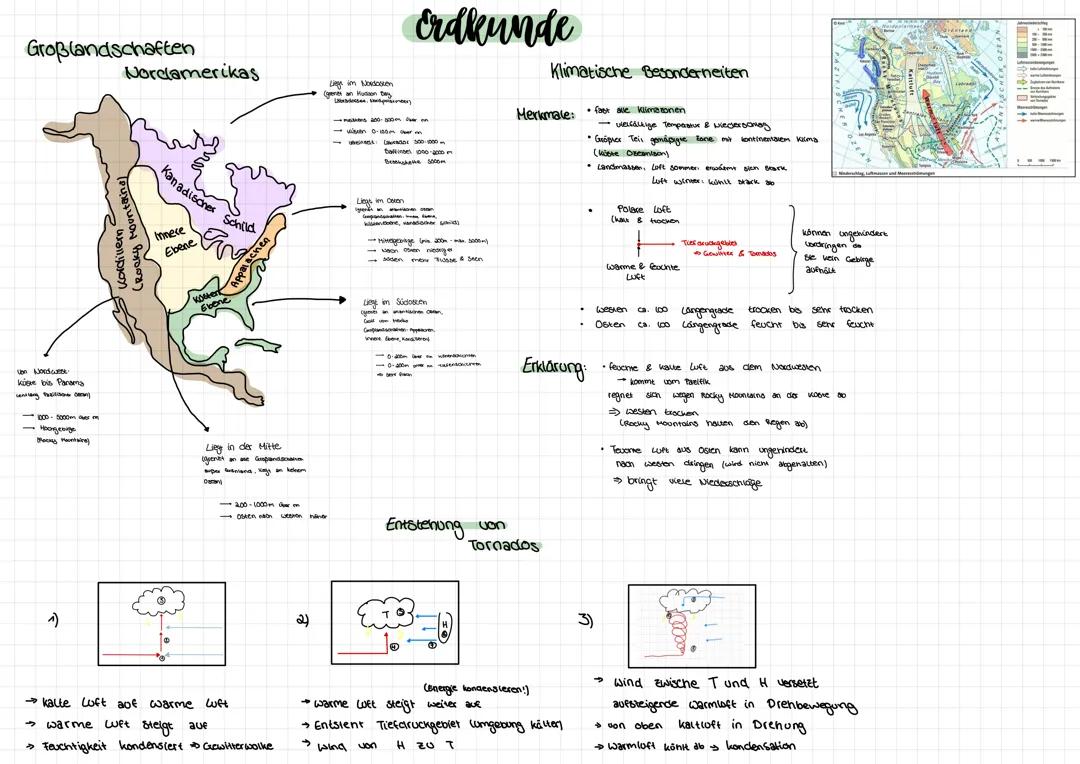 Erdkunde
Großlandschaften
Nordamerikas
Liegt im Nordosten
(grenzt an Hudson Bay,
→ meistens 200-500m über nn
→ Küsten 0-100m über nn
→ vereinzelt: Labrador 500-1000 m
Baffininsel 1000-2000 m
Kanadischer Schild
Kordillern
(Rocky Mountains)
Innere
Ebene
Appalachen
Küsten
Ebene
Liegt im Osten
(grenzt an atlantischen Ozean
Großlandschaften: Innere Ebene,
Küstenebene, Kanadischer Schild)
→ Mittelgebirge (min. 200m - max. 2000m)
→ nach Osten niedriger
→ Süden mehr Flüsse & Seen
Liegt im Südosten
(grenzt an atlantischen Ozean,
Golf von Mexiko
Großlandschaften: Appalachen,
Innere Ebene, Kordilleren)
→ 0-200m über nn
→ 0-200m unter nn
→ sehr flach
Von Nordwest-
küste bis Panama
(entlang Pazifischer Ozean)
→ 1000 - 5000m über nn
→ Hochgebirge
(Rocky Mountains)
Liegt in der Mitte
(grenzt an alle Großlandschaften
außer Grönland, liegt an keinem
Ozean)
→ 200-1000m über nn
→ Osten nach Westen höher
Klimatische Besonderheiten
Merkmale:
• fast alle Klimazonen
→ vielfältige Temperatur & Niederschlag
• Größter Teil gemäßigte Zone mit kontinentalem Klima
(Küste Ozeanisch)
• Landmassen: Luft Sommer: erwärmt sich stark
Luft Winter: kühlt stark ab
• Polare Luft
(kalt & trocken
→ Tiefdruckgebiet
⇒ Gewitter & Tornados
Warme & feuchte
Luft
können ungehindert
vordringen da
sie kein Gebirge
aufhält
• Westen ca. 100 Längengrade trocken bis sehr trocken
• Osten ca. 100 Längengrade feucht bis sehr feucht
Erklärung:
• feuchte & kalte Luft aus dem Nordwesten
→ kommt vom Pazifik
regnet sich wegen Rocky Mountains an der Küste ab
⇒ Westen trocken
(Rocky Mountains halten den Regen ab)
• Feuchte Luft aus Osten kann ungehindert
nach Westen dringen (wird nicht abgehalten)
⇒ bringt viele Niederschläge
Jahresniederschlag
Luftmassenbewegungen
Meeresströmungen
Niederschlag, Luftmassen und Meeresströmungen
Entstehung von
Tornados
1)
→ kalte Luft auf warme Luft
→ warme Luft steigt auf
→ Feuchtigkeit kondensiert ⇒ Gewitterwolke
2)
T
H
(Energie kondensieren!)
→ warme Luft steigt weiter auf
→ Entsteht Tiefdruckgebiet (Umgebung kälter)
→ Wind von H zu T
3)
→ Wind zwische T und H versetzt
aufsteigende Warmluft in Drehbewegung
→ von oben Kaltluft in Drehung
→ Warmluft kühlt ab → kondensation